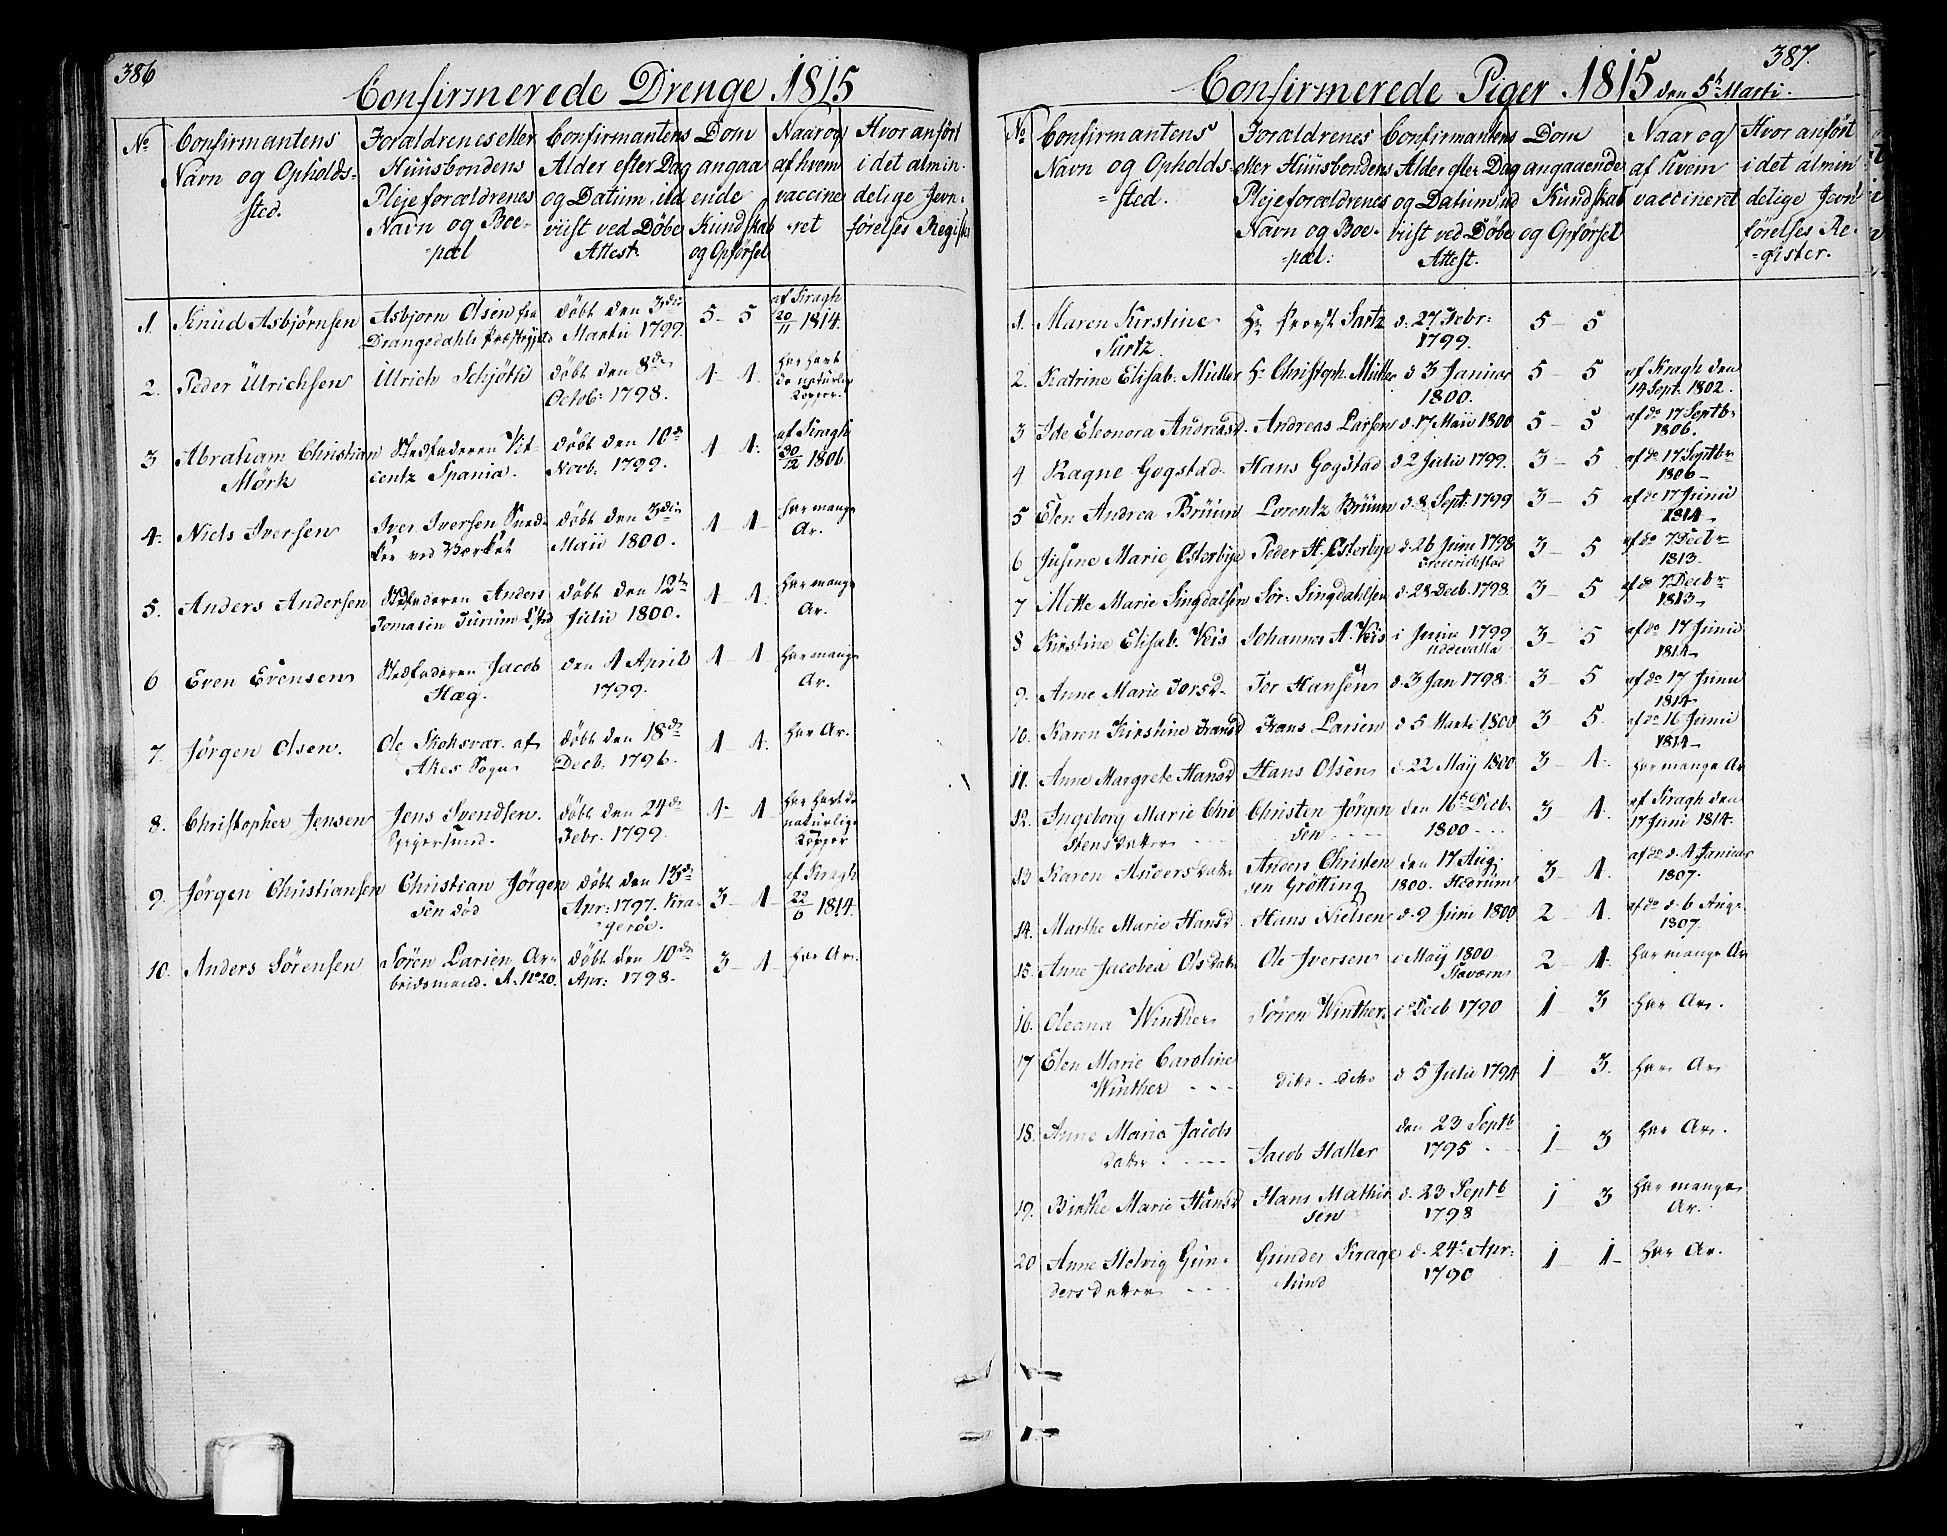 386
Confirmerede Drenge 1815
No
Confirmantens
Navn og Opholds-
sted.
Forældrenes eller
Huusbondens
Plejeforældrenes
Navn og Boe-
pæl
Confirmantens
Alder efter Dag
og Datum, ud
viist ved Døbe
Attest.
Dom
angaa
ende
Kundskab
og Opførsel
Naar og
af hvem
vaccine
ret
Hvor anført
i det almin-
delige Jevn-
førelses Regist
1. Knud Asbjørnsen
Asbjorn Olsen fra
Drangedahls
døbt den 3die
Martii 1799.
5 - 5
af Kragh
20/11 1814.
2. Peder Ulrichsen
Ulrich Schjøtt
døbt den 8de
Octob: 1798.
4 - 4.
har havt
de naturlige
Kopper.
3 Abraham Christian
Mørk
Stedfaderen Vi-
centz Spania.
døbt den 10de
Novb. 1799.
4 4.
af Kragh
30/12 1806.
4. Niels Iversen
Iver Iversen Sned-
ker ved Værket
døbt den 3die
Maii 1800.
4 4-
har mange
Ar.
5. Anders Andersen
Stedfaderen Anders
Tomasen
døbt den 12te
Julii 1800.
4 - 4.
har mange
Ar.
6 Even Evensen
Stedfaderen Jacob
Hæg.
den 4 April
1799.
4 - 4
har mange
Ar.
7. Jørgen Olsen.
Ole Skoksvær. af
Akes Sogn
døbt den 18de
Decb. 1796.
4 - 4.
har Ar.
8. Christopher Jensen
Jens Svendsen.
Egersund.
døbt den 24de
Febr. 1799.
4 - 4
har havt de
naturlige
Kopper
9. Jørgen Christiansen
Christian Jørgen
sen død
døbt den 13de
Apr: 1797. Kra-
gerøe.
3 - 4 -
af Kragh
22/6 1814.
10. Anders Sørensen
Søren Larsen Ar-
beidsmand. A. No 20.
døbt den 10de
Apr: 1798.
3 - 4 -
har Ar.
387.
Confirmerede Piger 1815 den 5te Marti.
No
Confirmantens
Navn og Opholds-
sted.
Forældrenes
eller Huusbondens
Plejeforældrenes
Navn og Boe-
pæl.
Confirmantens
Alder efter Dag
og Datum, ud
viist ved Døbe
Attest.
Dom
angaaende
Kundskab
og Opførsel
Naar og
af hvem
vaccineret
Hvor anført
i det almin
delige Jevn
førelses Re-
gister.
1. Maren Kirstine
Surtz.
Hr Provst Surtz
d. 27 Febr:
1799.
5 - 5
2. Katrine Elisab. Müller
Hr Christoph. Müller
d 3 Januar
1800.
5 - 5
af Kragh den
14 Sept. 1802.
3 Ide Eleonora Andreasd.
Andreas Larsen
d. 17 Maii 1800
5 - 5
af do 17 Septb-
1806.
4 Ragne Gogstad.
Hans Gogstad
d. 2 Julii 1799.
3 - 5
af do 17 Septb-
1806-
5 Elen Andrea Brüün
Lorentz Brüün
d. 8 Sept. 1799
3 - 5
af do 17 Junii
1814-
6 Jusine Marie Østerbye
Peder H. Østerbye
d. 26 Juni 1798
Frederichstad
3 - 5
af do 7 Decb-
1813.
7 Mette Marie Singdalsen
Sør. Singdahlsen
d. 28 Decb. 1798.
3 - 5
af do 7 Decb-
1813-
8 Kirstine Elisab. Veis
Johannes A. Veis
i Junii 1799
Uddevalla
3 - 5
af do 17 Junii
1814-
9. Anne Marie Torsd.
Tor Hansen
d. 3 Jan 1798.
3 - 5
af do 17 Junii
1814-
10. Karen Kirstine Hansd
Hans Larsen
d 5 Marti 1800
3 - 5.
af do 16 Junii
1814-
11. Anne Margrete Hansd
Hans Olsen
d. 22 Maij 1800
3 - 4.
har mange Ar
12. Ingeborg Marie Chri
stensdatter
Christen Jørgen
sen
den 16de Decb.
1800
3 - 4.
af Kragh den
17 Juni 1814.
13 Karen Andersdatr
Anders Christen
sen Grøtting
den 17 Aug.
1800. Hedrum
3 - 4.
af do d. 4 Januar
1807.
14. Marthe Marie Hansd.
Hans Nielsen
d. 9 Juni 1800
2 - 4.
af do d. 6 Aug.
1807.
15. Anne Jacobea Olsdatr
Ole Iversen
i Maij 1800
Stavern
2 - 4.
har mange Ar
16. Oleana Winther
Søren Winther
i Decb 1790
1 - 3
har Ar.
17 Elen Marie Caroline
Winther
dito - dito
d 5 Julii 1794
1 - 3.
har Ar
18. Anne Maria Jacobs
datter
Jacob Haller
den 23 Septb
1795
1 - 3
har Ar.
19. Birthe Marie Hansd
Hans Mathis
sen
d. 23 Septb
1798
1 - 3
har mange
Ar.
20 Anne Helvig Gun-
dersdatter
Gunder Krage
lund
d. 24de Apr:
1790
1 - 1-
har Ar.